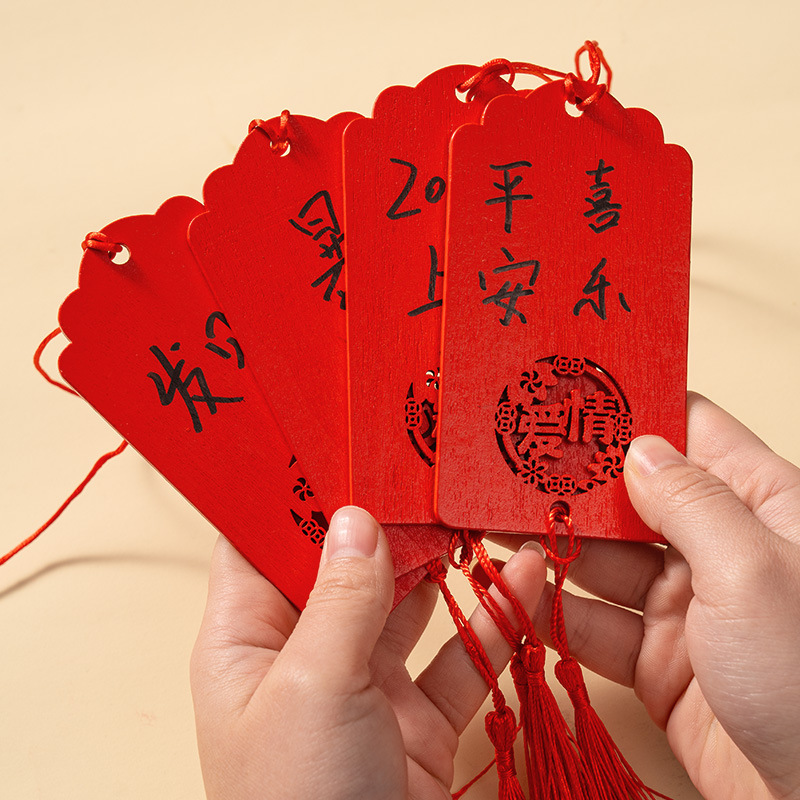 平 喜
安 乐
爱情
20
上
发